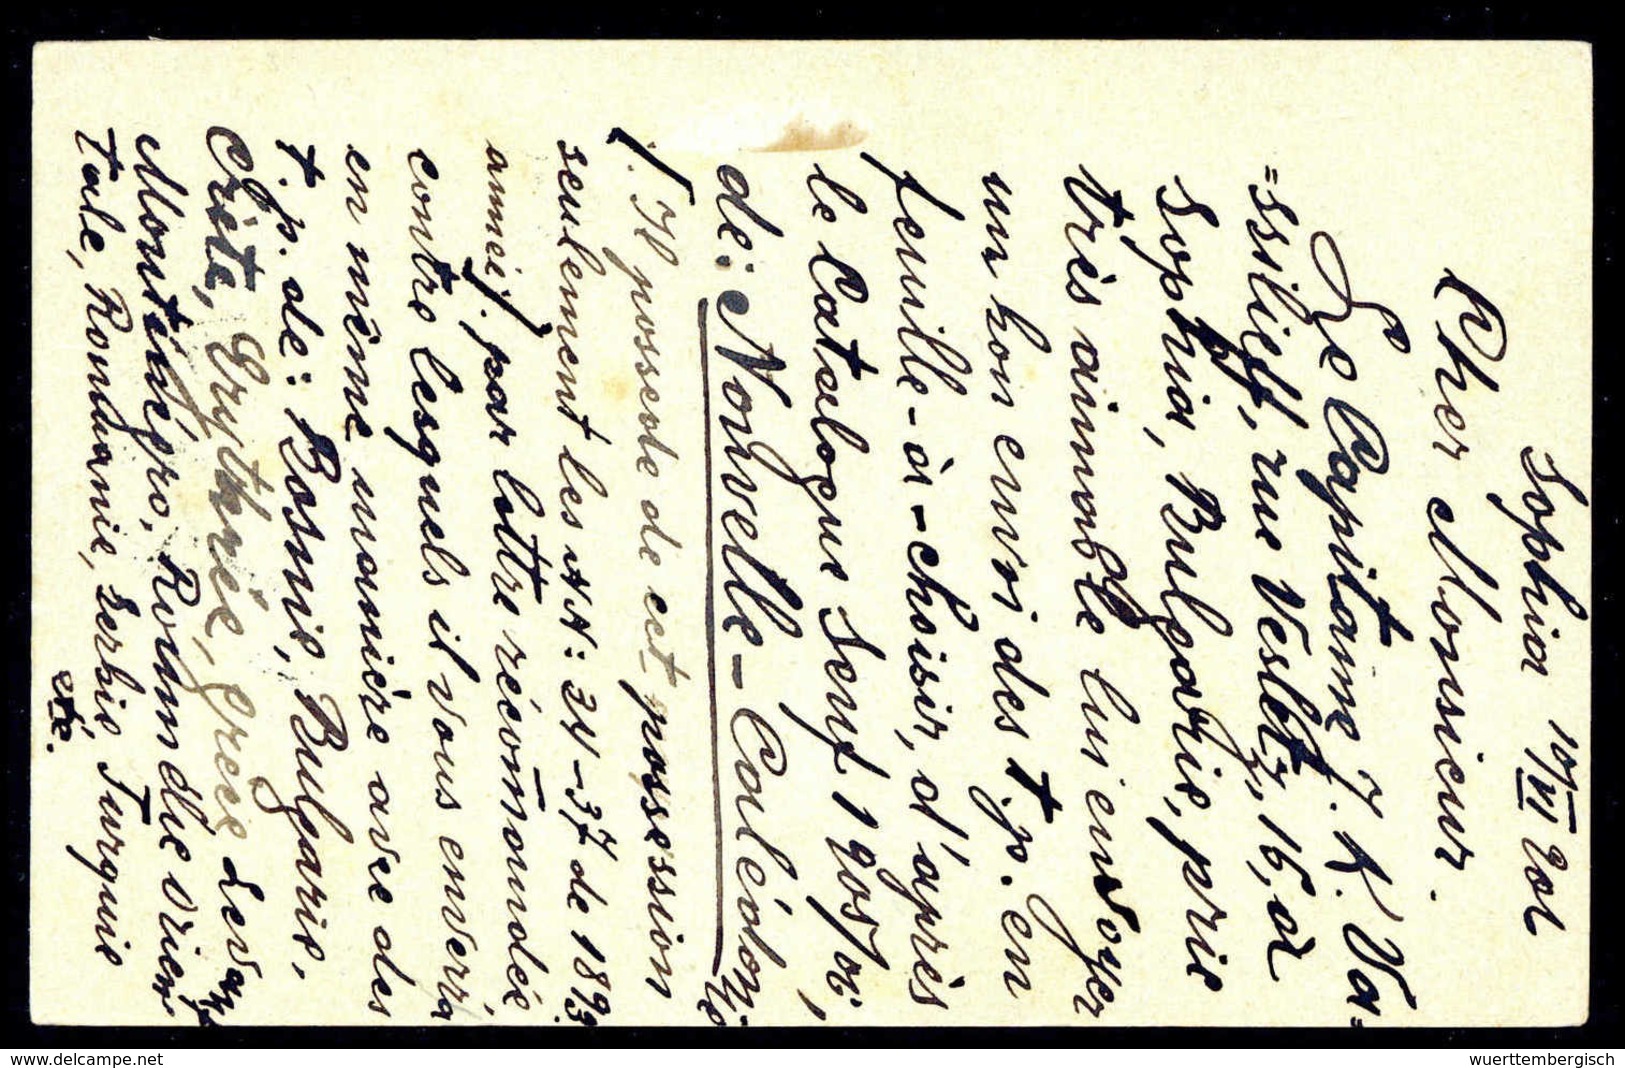 Sophia 10/VI 901
Cher Monsieur.
Le Capitaine J. K. Va=
=ssilieff, rue Vesletz, 16, à
Sophia, Bulgarie, prie
très aimable lui envoyer
un bon envoi des t.p. en
feuille-à-choisir, d'après
le Catalogue Senf 1905/06,
de: Nouvelle-Calédonie
/. Il possede de cet possession
seulement les NN: 34-37 de 1893
année/. par lettre récomandée
contre lesquels il vous enverra
en même manière avec des
t.p. de: Bosnie, Bulgarie,
Crète, Erythrée, Grèce, Levant,
Monténégro, Roumélie Orien-
tale, Roumanie, Serbie, Turquie
etc.
delcampe.net
wuerttembergisch